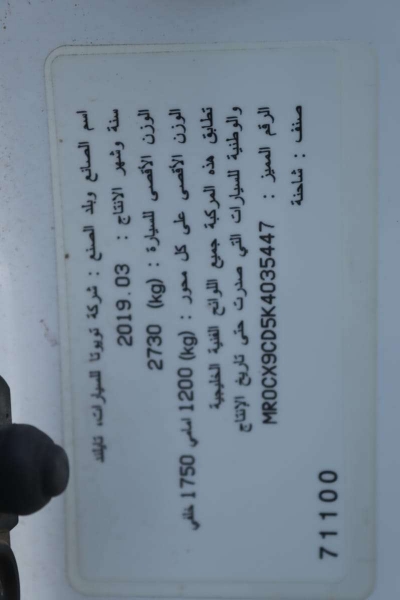 اسم الصانع وبلد الصنع : شركة تويوتا للسيارات، تايلند
سنة وشهر الانتاج : 2019.03
الوزن الأقصى للسيارة : (kg) 2730
الوزن الأقصى على كل محور : (kg) 1200 امامي 1750 خلفي
تطابق هذه المركبة جميع اللوائح الفنية الخليجية
والوطنية للسيارات التي صدرت حتى تاريخ الإنتاج
الرقم المميز : MR0CX9CD5K4035447
صنف : شاحنة
71100